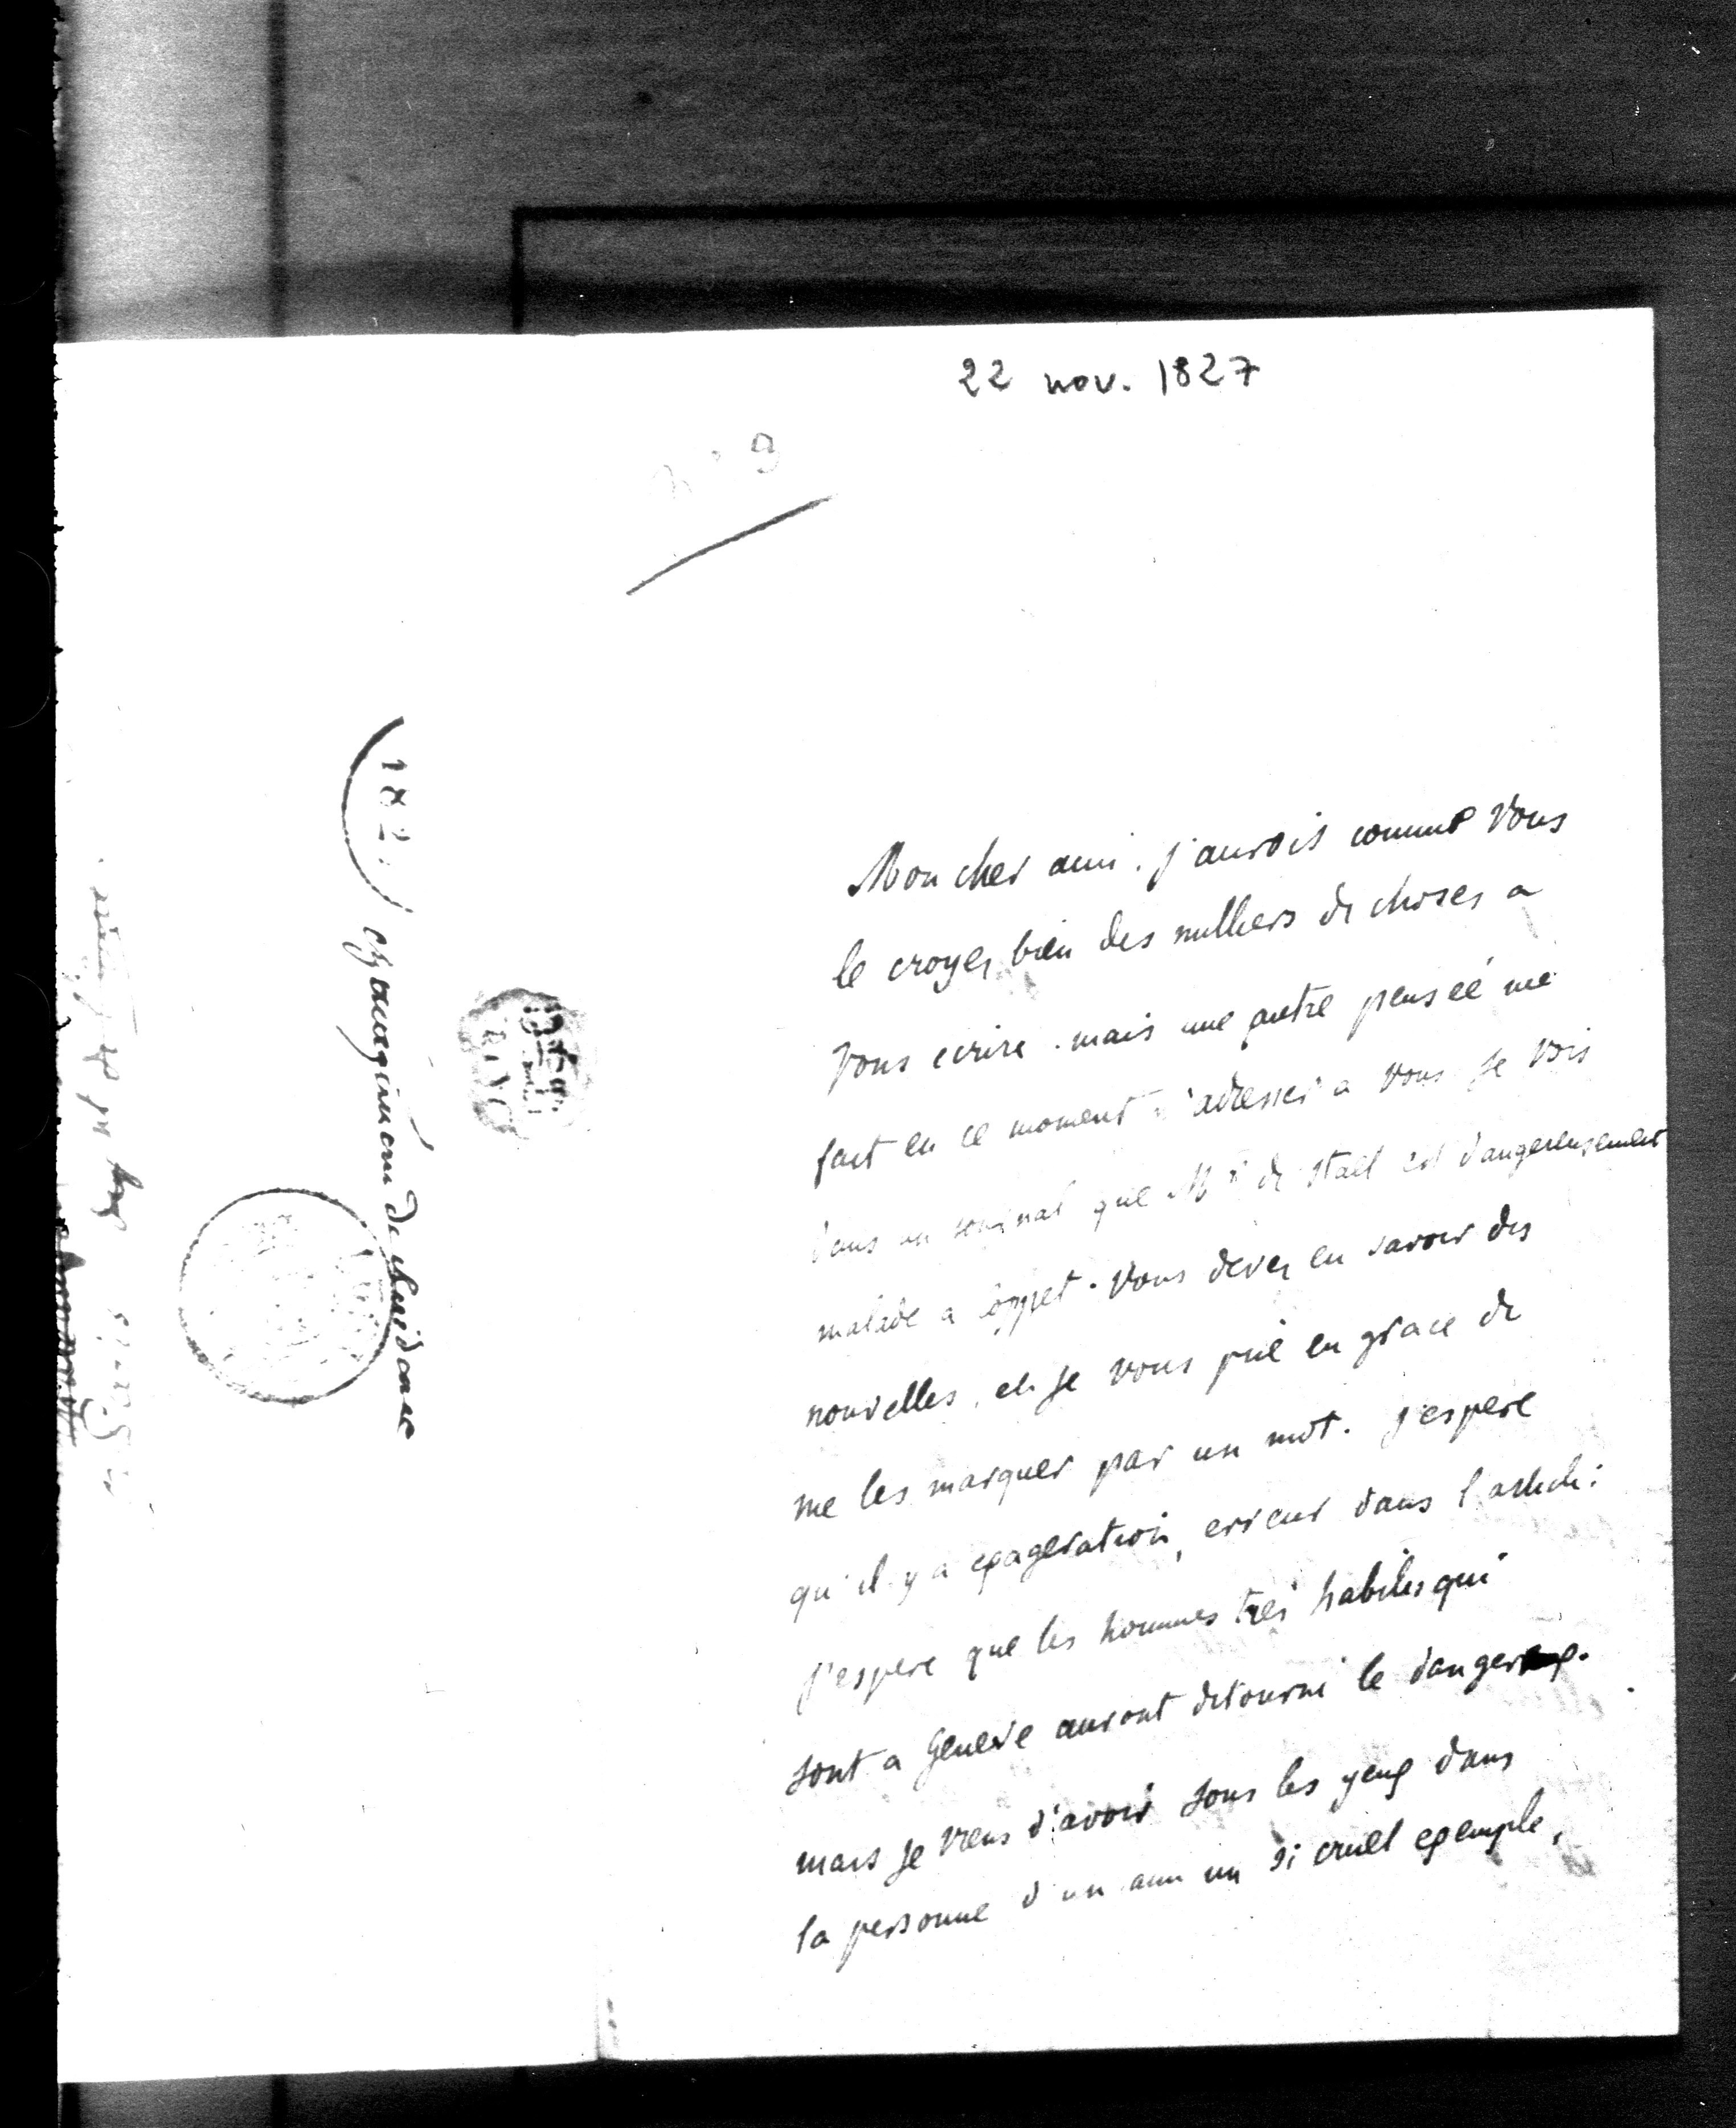 22 nov. 1827
n° 9
Mon cher ami. j'aurois comme vous
le croyez bien des milliers de choses a
vous ecrire. mais une autre pensée me
fait en ce moment m'adresser a vous je vois
dans un journal que Mr de Stael est dangereusement
malade a Coppet. vous devez en savoir des
nouvelles, et je vous prie en grace de
me les marquer par un mot. j'espere
qu'il y a exageration, erreur dans l'article:
j'espere que les hommes très habiles qui
sont a Geneve auront detourné le danger.
mais je viens d'avoir sous les yeux dans
la personne d'un ami un si cruel exemple,
182